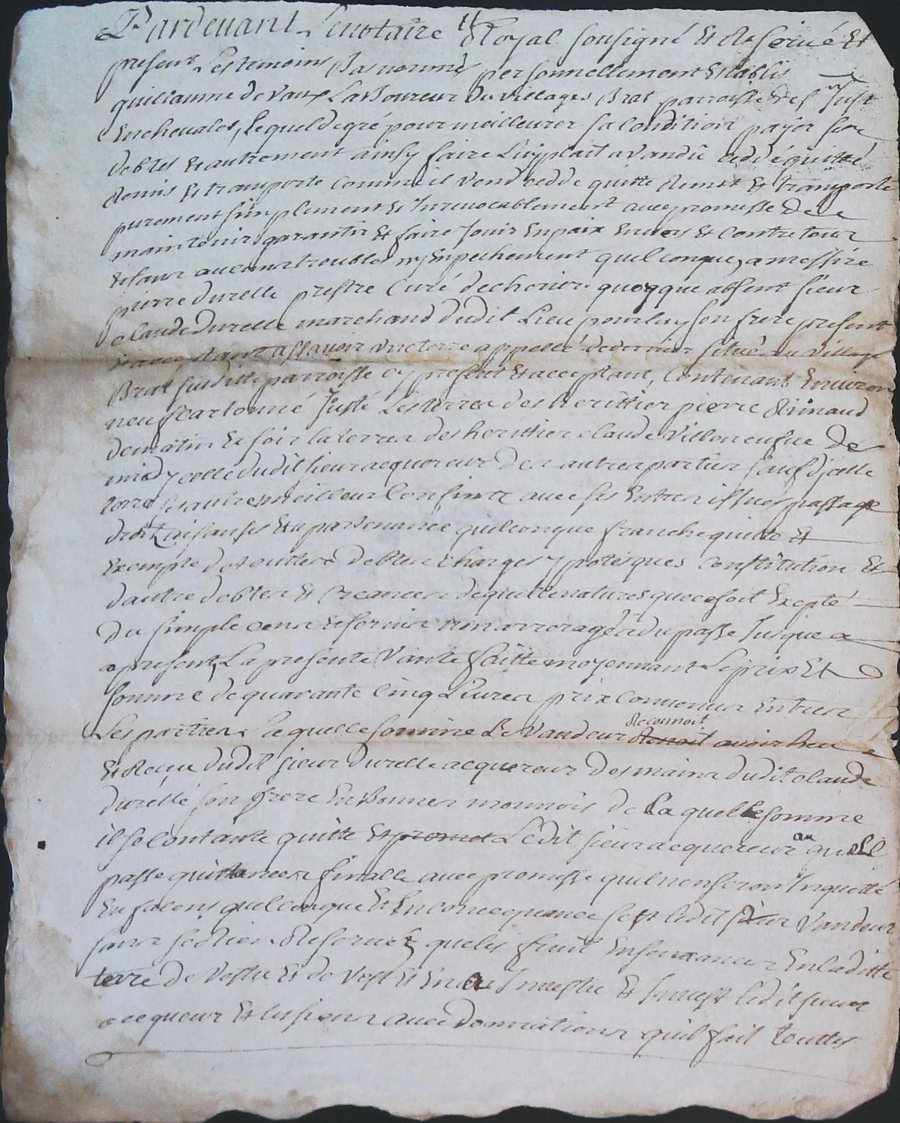 Pardevant Le notaire Royal sousigné et Reservé Et
present Les temoins Bas nommés personnellement Etablis
guillaume de Vaux Laboureur du villages Brat parroisse de St Just
En chevalet, lequel de gré pour meilleurer sa condition payer ses
debtes et autrement ainsy faire Luy plait a vandu cedde quitté
Remis et transporte comme il vend cedde quitte Remet et transporte
purement simplement et Irrevocablement avec promesse de
maintenir garantir et faire Jouir En paix Envers et contre tous
et sans aucuns troubles ny Empechement quelconque, a messire
pierre durelle prestre Curé de quoyque absent sieur
Claude durelle marchand dudit Lieu pour luy son frere present
et acceptant assavoir une terre appellée situé au village
Brat susditte parroisse cy present et acceptant, Contenant Environ
neuf cartonné Juste Les terres des herittier pierre Rimaud
de matin et soir la terres des herittier claude Villeneufue de
midy celle dudit sieur acquereur des autres parties sauf d'jcelle
terre et autre meilleur Confins avec ses Entrés issues passage
droit aisances et apartenance quelconque franche quitte et
Exempte de touttes debtes charges ypoteques constitution Et
d'autre debtes et creances de quelle natures que ce soit Excepté
Du simple cens et servis non arreragés du passé Jusque a
present, La presente Vante faitte moyennant Le prix Et
somme de quarante Cinq Livres prix convenus Entre
Les parties Laquelle somme Le Vandeur Reconnoit avoir heu
Et Receu dudit sieur durelle acquereur des mains dudit claude
durelle son frere En Bonnes monnois de La quelle somme
il se contante quitte Et promet Ledit sieur acquereur au quel il
passe quittances finalle avec promesse quil n'en seron Inquietté
En façons quelconque Et En consequance sest ledit sieur Vandeur
sans se rien Reserver quelis fruit En sa Enladitte
terre De Vestu Et de Vest Et En a Invesstu Et Invest ledit sieur
acqueur Et les siens avec donnations quil fait touttes